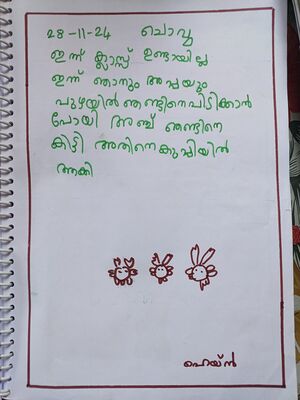 28-11-24 ചൊവ്വ
ഇന്ന് ക്ലാസ്സ് ഉണ്ടായില്ല
ഇന്ന് ഞാനും അപ്പയും
പുഴയിൽ ഞണ്ടിനെ പിടിക്കാൻ
പോയി അഞ്ച് ഞണ്ടിനെ
കിട്ടി അതിനെ കുപ്പിയിൽ
ആക്കി
ഹെയ്ൻ